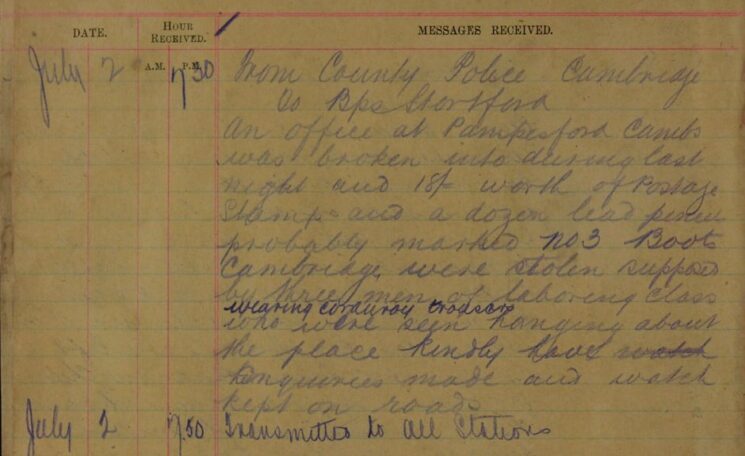 DATE. HOUR RECEIVED. MESSAGES RECEIVED.
A.M. P.M.
July 2 7 30 From County Police Cambridge
To Bps Stortford
An office at Pampesford Cambs
was broken into during last
night and 18/- worth of Postage
Stamps and a dozen lead pencils
probably marked No 3 Boots
Cambridge were stolen supposed
by three men of laboring class
wearing corduroy trousers
who were seen hanging about
the place kindly have watch
enquiries made and watch
kept on roads
July 2 7.50 Transmitted to All Stations